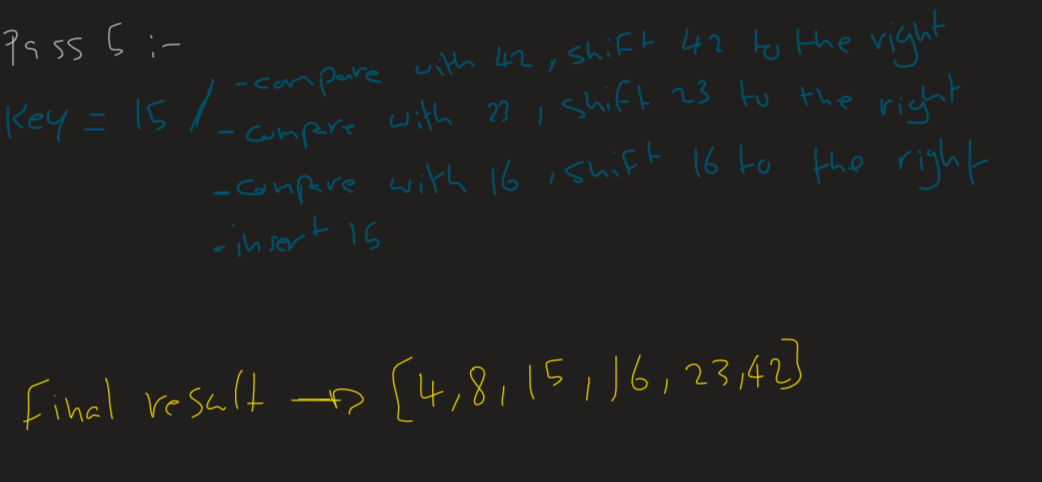 Pass 5 :-
Key = 15 / - compare with 42, shift 42 to the right
- compare with 23, shift 23 to the right
- compare with 16, shift 16 to the right
- insert 15
final result → [4,8,15,16,23,42]